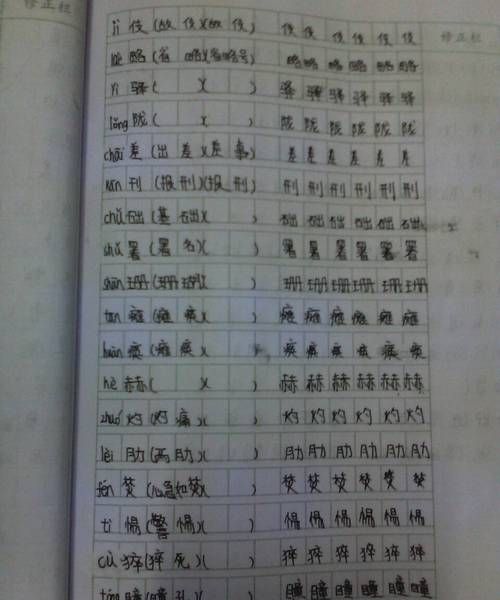 修正栏
jì 伎 (故伎)(故伎) 伎伎伎伎伎伎
lüè 略 (省略)(省略号) 略略略略略略
yì 驿 ( )( ) 驿驿驿驿驿驿
lǒng 陇 ( )( ) 陇陇陇陇陇陇
chāi 差 (出差)(差事) 差差差差差差
kān 刊 (报刊)(报刊) 刊刊刊刊刊刊
chǔ 础 (基础)( ) 础础础础础础
shǔ 署 (署名)( ) 署署署署署署
shān 珊 (珊瑚)( ) 珊珊珊珊珊珊
tān 瘫 (瘫痪)( ) 瘫瘫瘫瘫瘫瘫
huàn 痪 (瘫痪)( ) 痪痪痪痪痪痪
hè 赫 ( )( ) 赫赫赫赫赫赫
zhuó 灼 (灼痛)( ) 灼灼灼灼灼灼
lèi 肋 (两肋)( ) 肋肋肋肋肋肋
fén 焚 (心急如焚)( ) 焚焚焚焚焚焚
tì 惕 (警惕)( ) 惕惕惕惕惕惕
cù 猝 (猝死)( ) 猝猝猝猝猝猝
tóng 瞳 (瞳孔)( ) 瞳瞳瞳瞳瞳瞳
修正栏